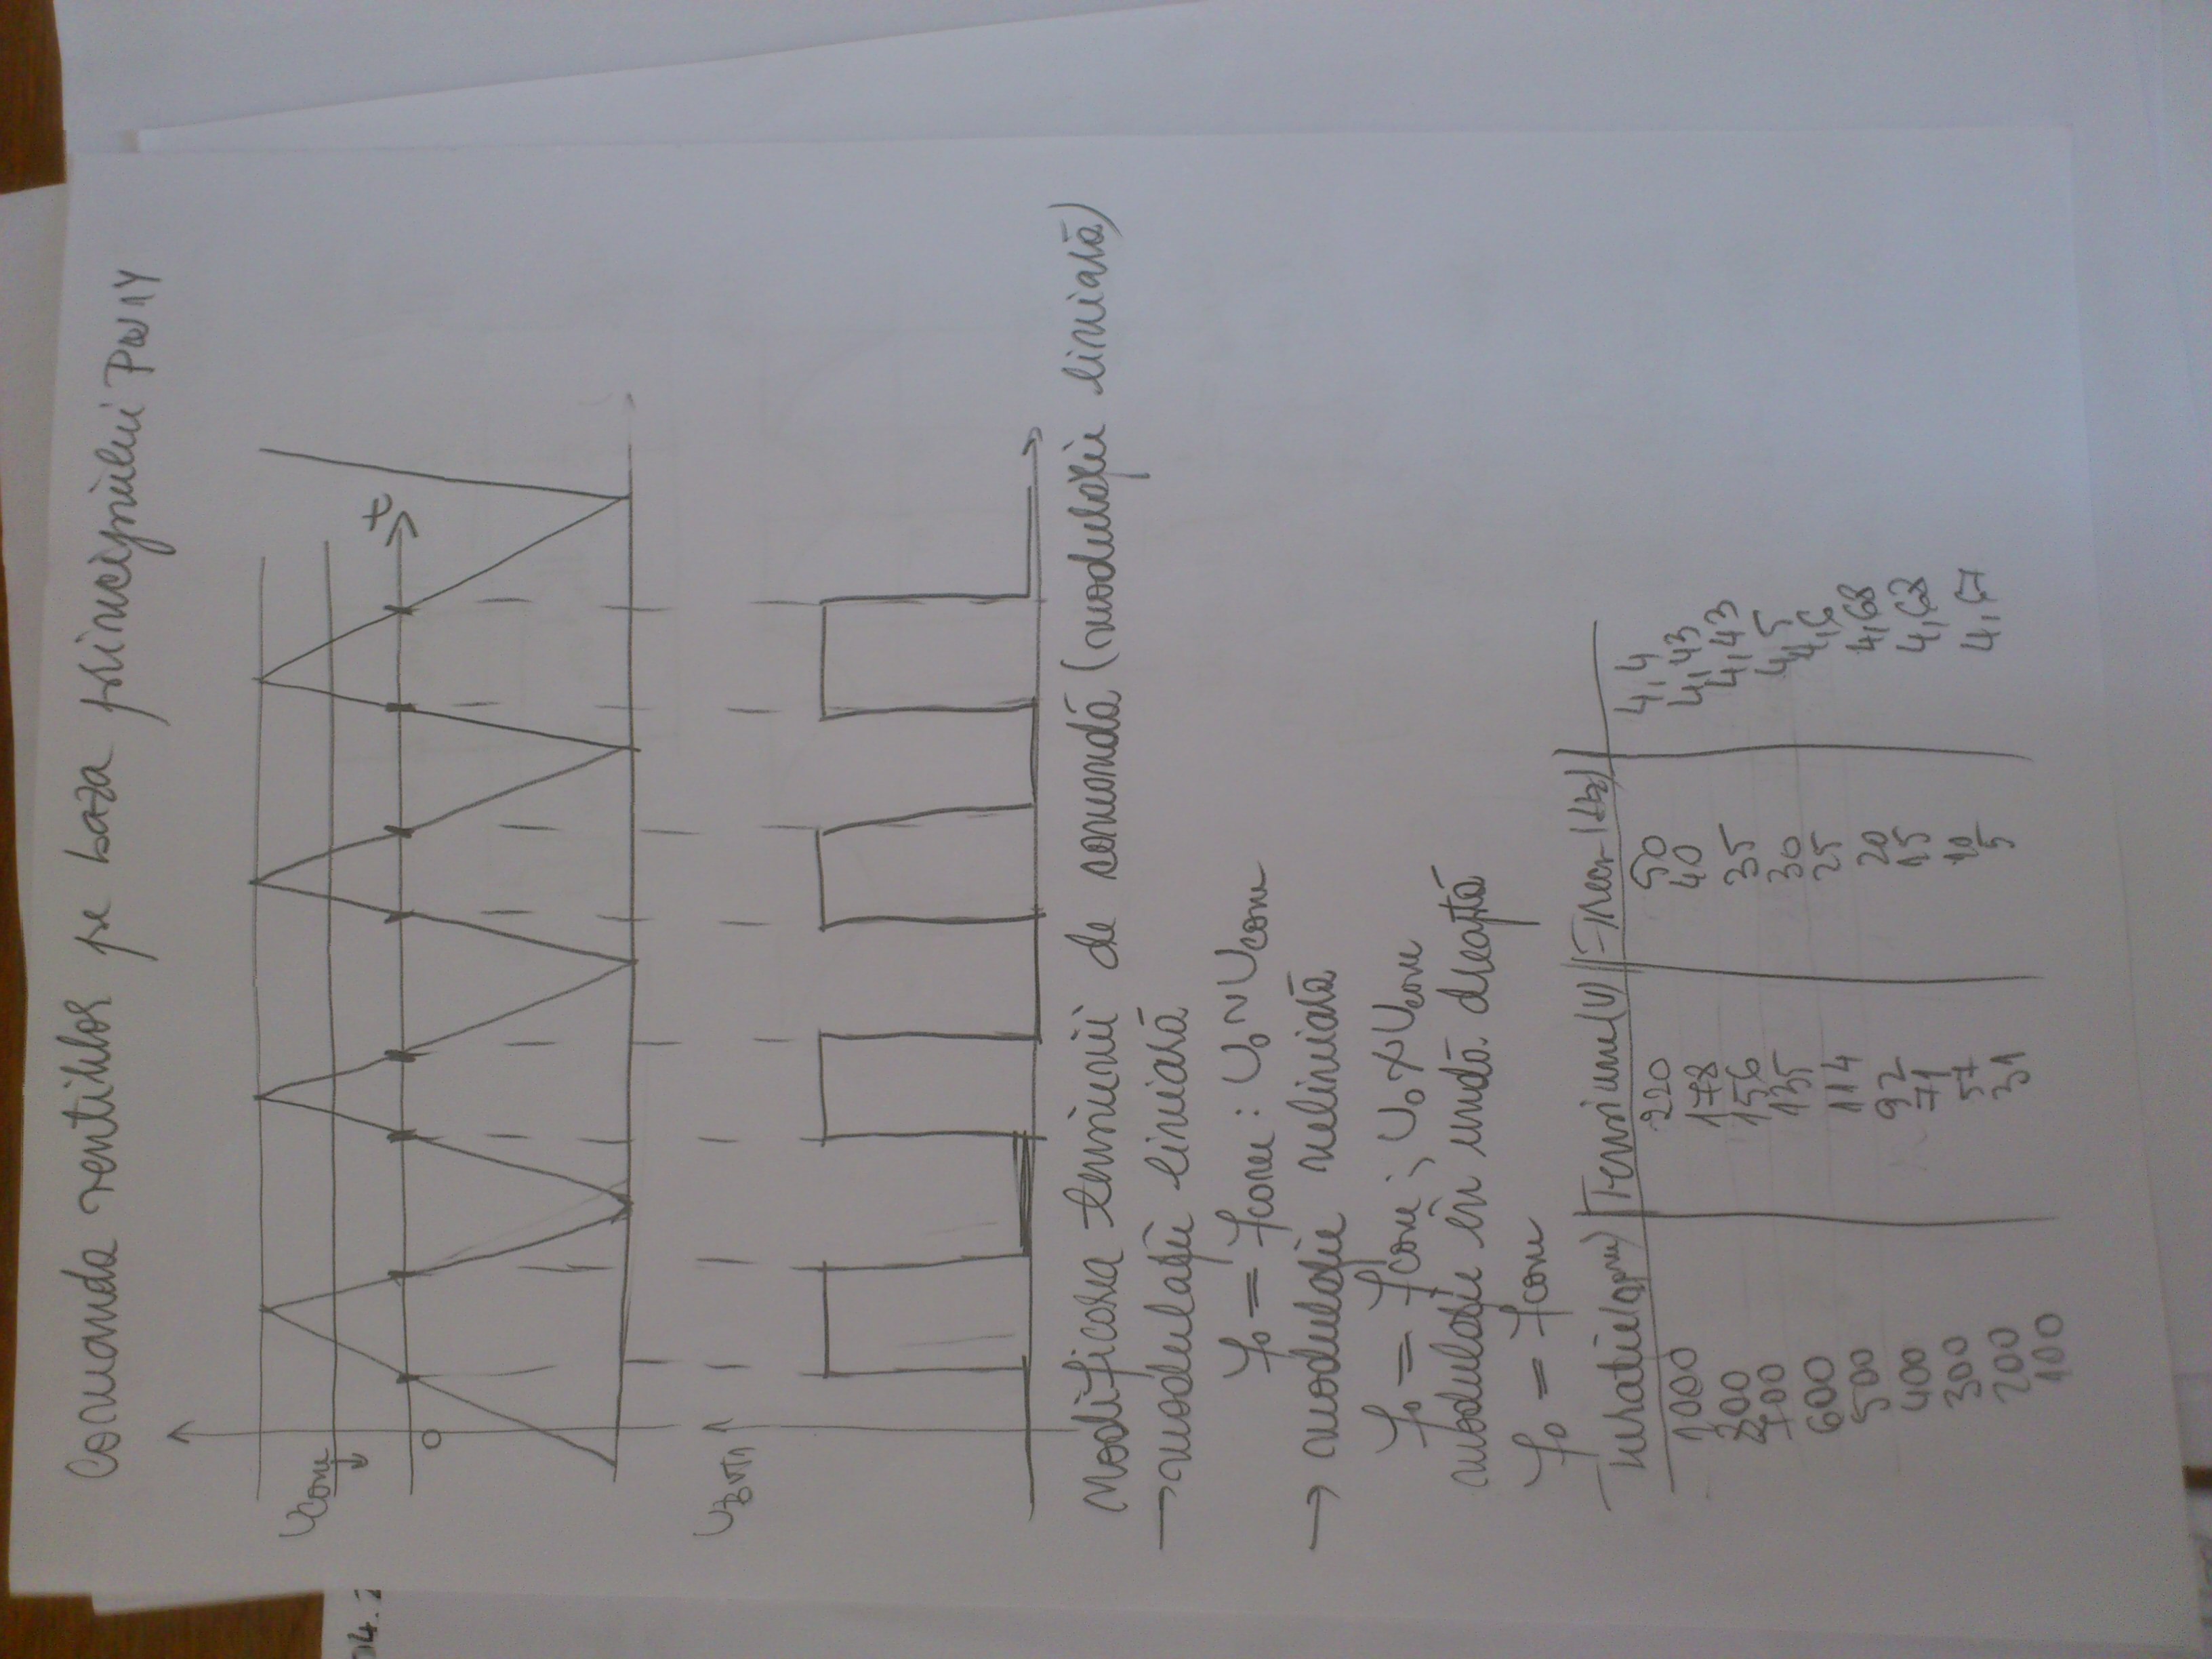 Comanda ventililor pe baza principiului PWM
Ucom
t
0
UBVT1
Modificarea tensiunii de comandă (modulație liniară)
→ modulație liniară
f0 = fcom : U0 ~ Ucom
→ modulație neliniară
f0 = fcom ; U0 ≁ Ucom
modulație în undă dreaptă
f0 = fcom
Turatie(rpm) | Tensiune(V) | Frecv (Hz) |
1000 220 50 4,4
800 178 40 4,43
700 156 35 4,43
600 135 30 4,5
500 114 25 4,6
400 92 20 4,68
300 71 15 4,68
200 57 10 4,67
100 31 5
04.2